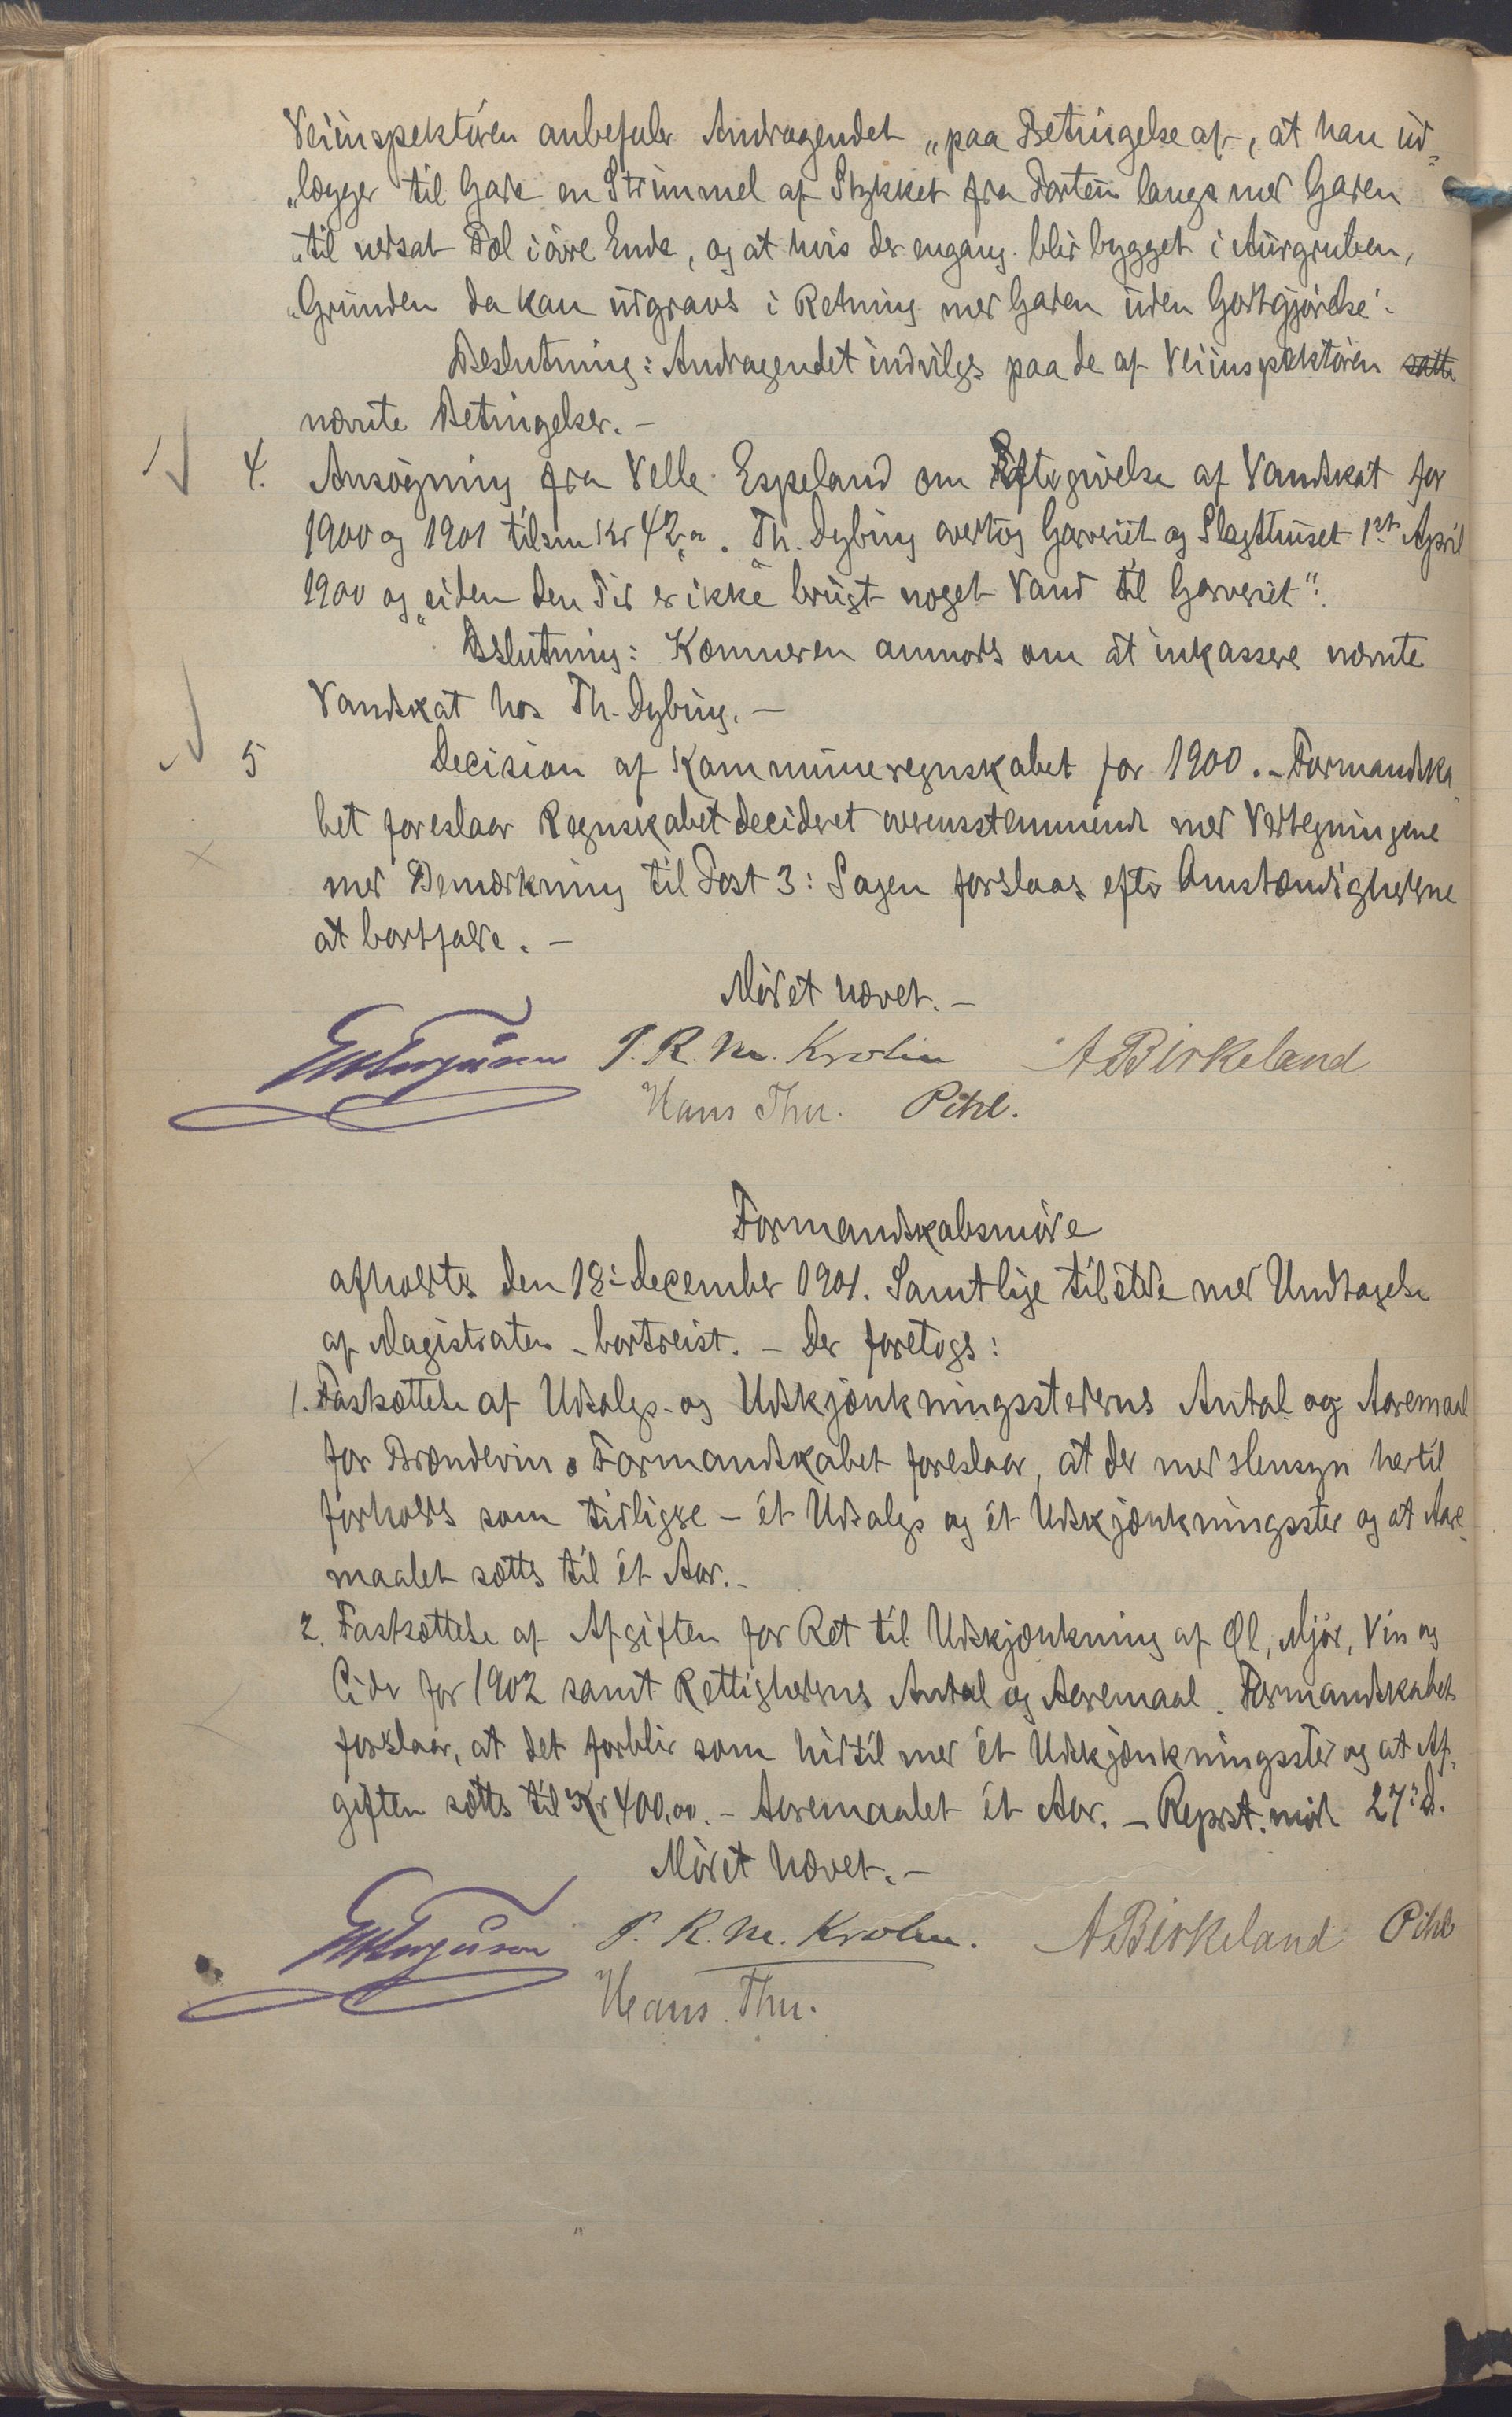 Veiinspektøren anbefaler Andragendet „paa Betingelse af, at han ud-
„lægger til Gade en Strimmel af Stykket fra Porten langs med Gaden
„til nedsat Pæl i øvre Ende, og at hvis der engang blir bygget i Aurgruben,
„Grunden da kan udgraves i Retning med Gaden uden Godtgjørelse".
Beslutning: Andragendet indvilges paa de af Veiinspektøren satte
nævnte Betingelser. –
4. Ansøgning fra Velle Espeland om Eftergivelse af Vandskat for
1900 og 1901 tilsm Kr 42,00. Th. Dybing overtog Garveriet og Slagthuset 1st April
1900 og „siden den Tid er ikke brugt noget Vand til Garveriet".
Beslutning: Kæmneren anmodes om at inkassere nævnte
Vandskat hos Th. Dybing. –
5 Decision af Kommuneregnskabet for 1900. – Formandska-
bet foreslaar Regnskabet decideret overensstemmende med Vedtegningene
med Bemærkning til Post 3: Sagen foreslaaes efter Omstændighederne
at bortfalde. –
Mødet hævet. –
P. R. M. Krohn A Birkeland
Hans Thu. Pihl.
Formandskabsmøde
afholdtes den 18: December 1901. Samtlige tilstede med Undtagelse
af Magistraten – bortreist. – Der foretoges:
1. Fastsættelse af Udsalgs- og Udskjænkningsstedernes Antal og Aaremaal
for Brændevin. Formandskabet foreslaar, at der med Hensyn hertil
forholdes som tidligere – ét Udsalgs og ét Udskjænkningssted og at Aare-
maalet sættes til ét Aar. –
2. Fastsættelse af Afgiften for Ret til Udskjænkning af Øl, Mjød, Vin og
Cider for 1902 samt Rettighedernes Antal og Aaremaal. Formandskabet
foreslaar, at det forblir som hidtil med ét Udskjænkningssted og at Af-
giften sættes til Kr 400,00. – Aaremaalet ét Aar. – Reprst. møde 27: d.
Mødet hævet. –
P. R. M. Krohn. A Birkeland Pihl
Hans Thu.